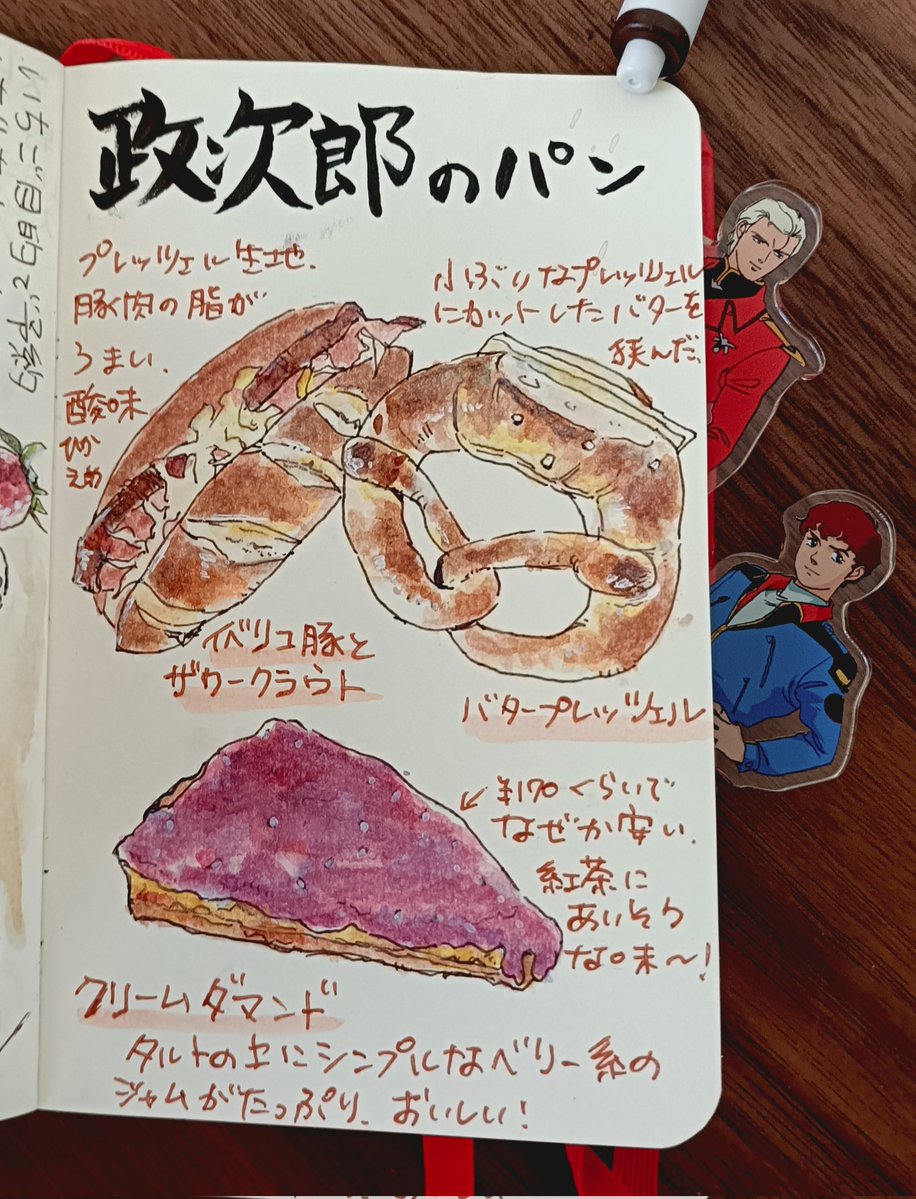 政次郎のパン
プレッツェル生地.
豚肉の脂が
うまい.
酸味
ひかえめ
小ぶりなプレッツェル
にカットしたバターを
挟んだ.
イベリコ豚と
ザワークラウト
バタープレッツェル
¥170くらいで
なぜか安い.
紅茶に
あいそう
な味〜!
クリームダマンド
タルトの上にシンプルなベリー系の
ジャムがたっぷり、おいしい!